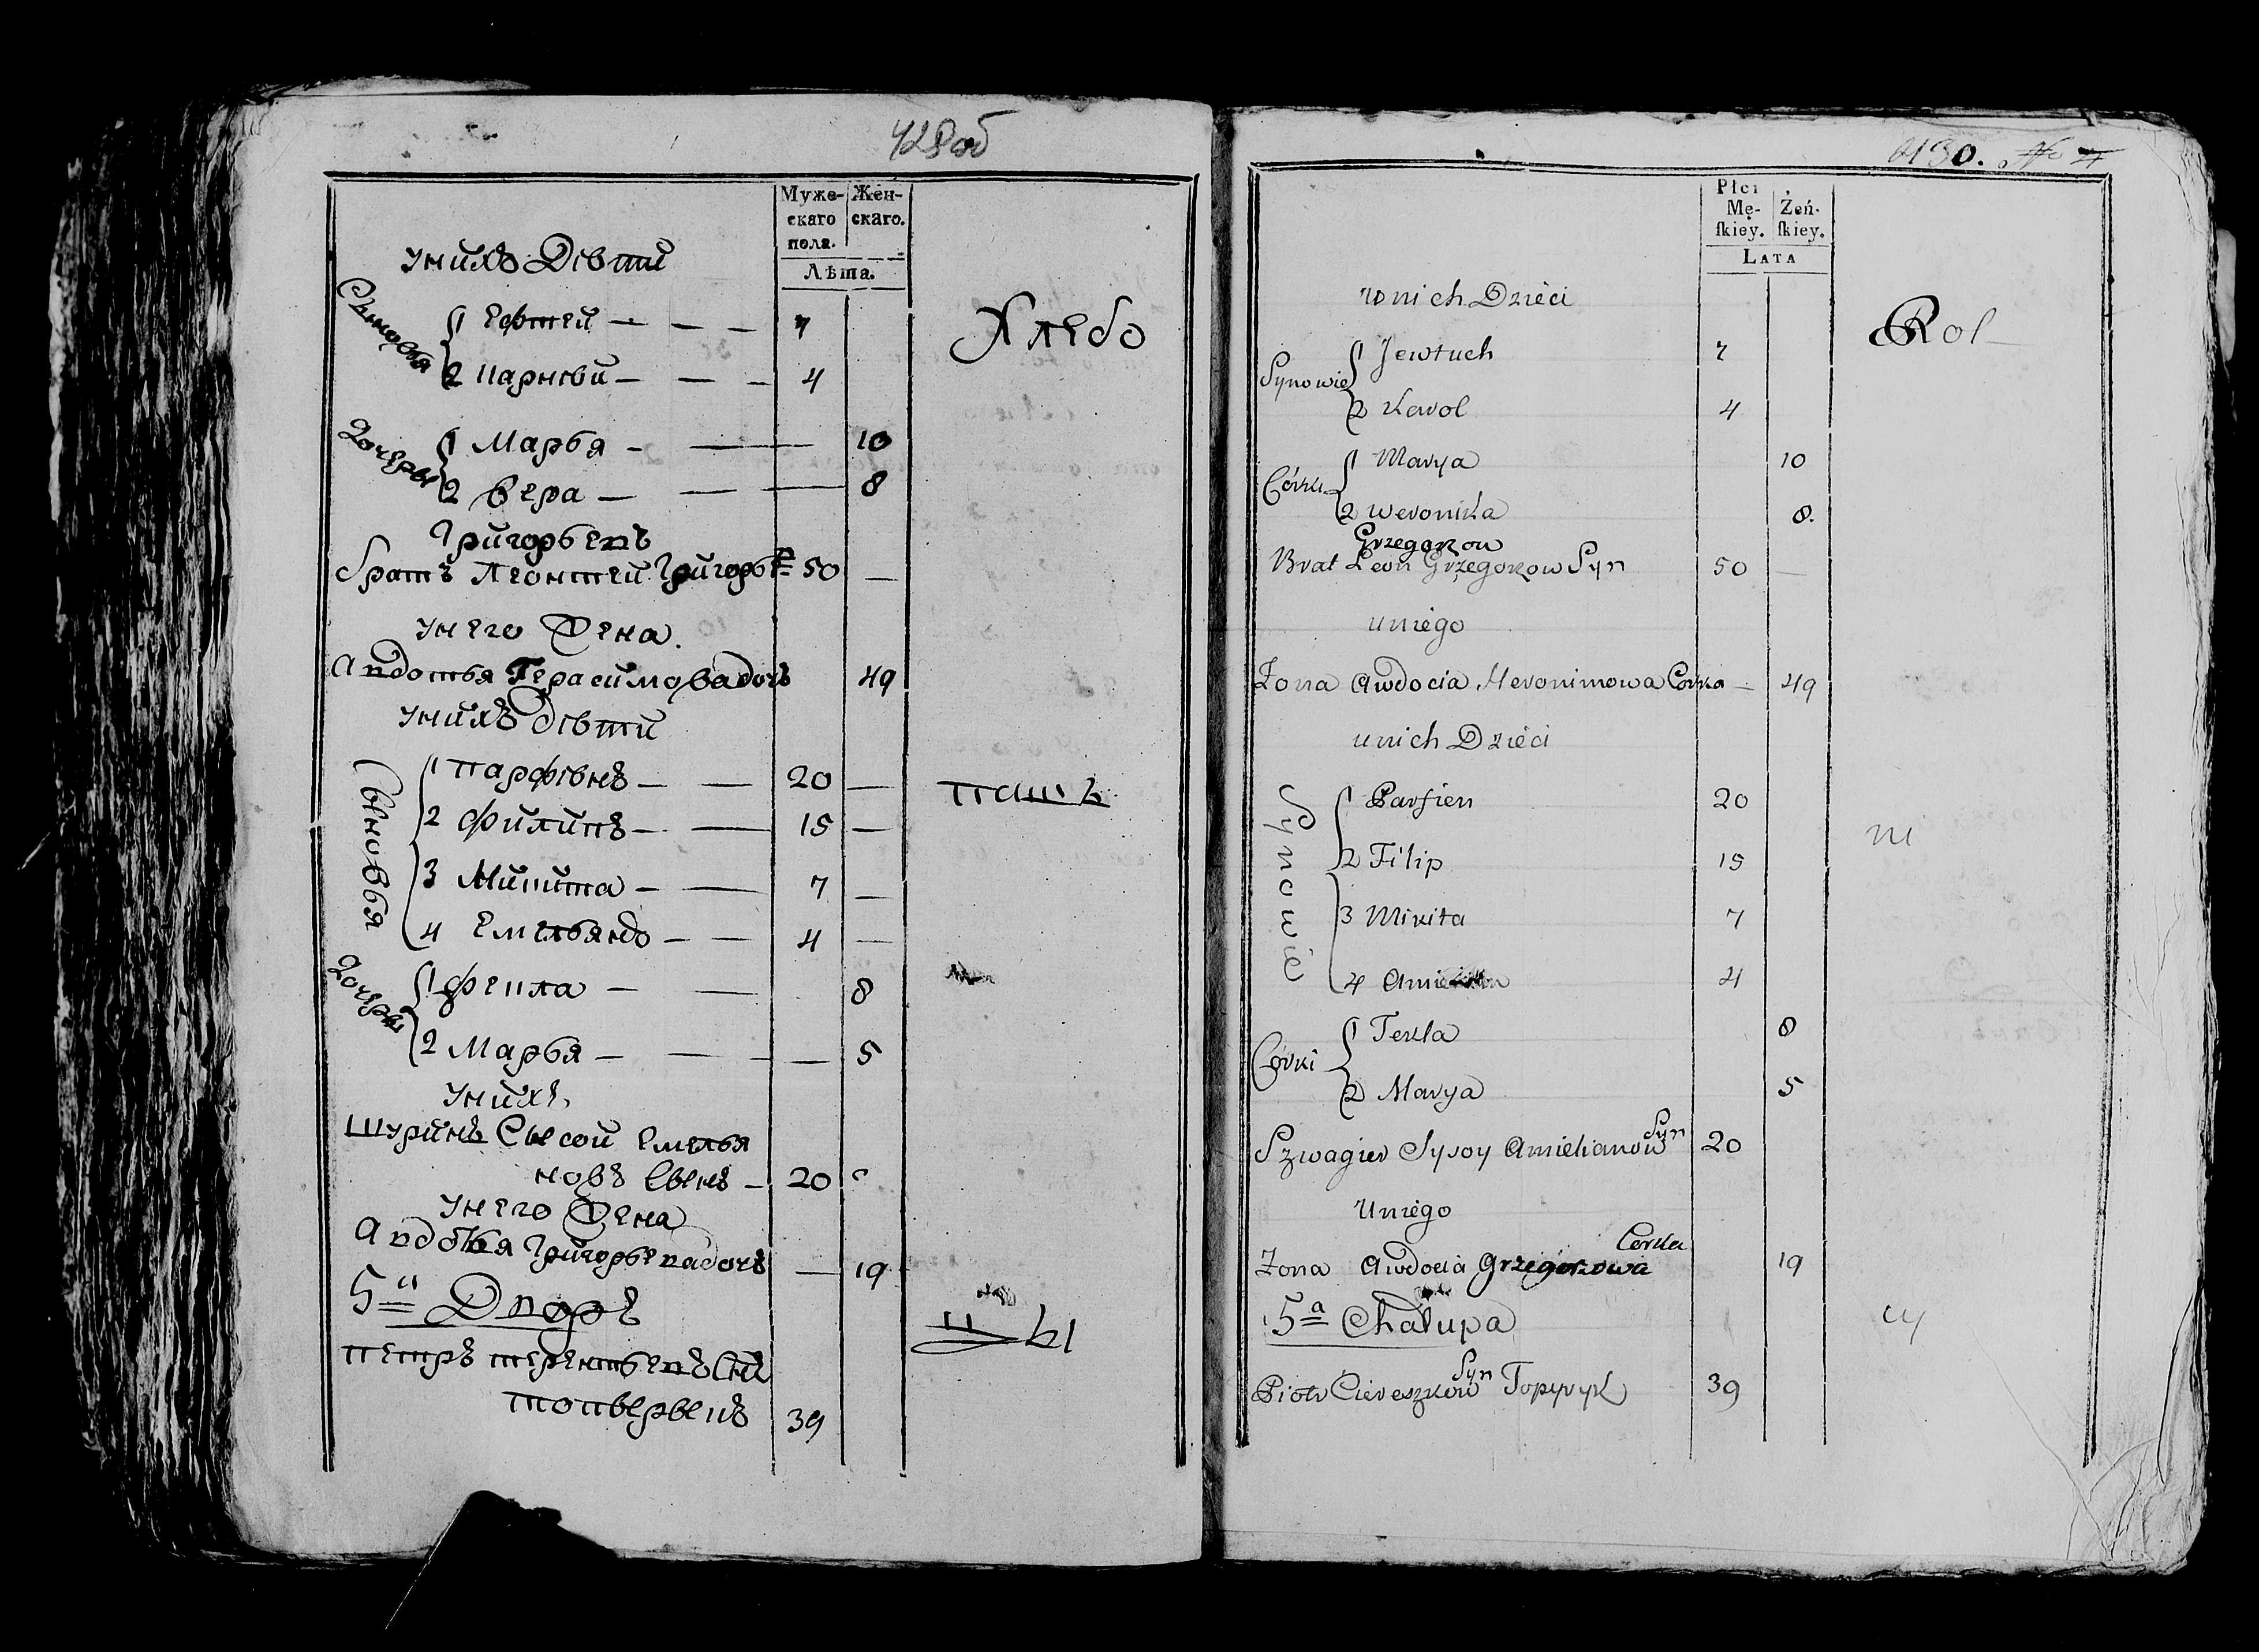 428об
Муже-
скаго
пола.
Жен-
скаго.
Лѣта.
унихъ Дѣти
Сыновья
1 Ефтей — — — 7
Хлебо
2 Парнѣй — — — 4
Дочеры
1 Марья — — 10
2 Вера — — 8
Григорьевъ
братъ Леонтей 50 —
унего Жена.
Авдотья Герасимова дочь 49
унихъ дѣти
Сыновья
1 Парфѣнъ — — 20 —
паш
2 Филипъ — — 15 —
3 Микита — — 7 —
4 Емельянъ — — 4 —
Дочеры
1 Фекла — — 8
2 Марья — — — 5
унихъ
Шуринъ Сысой Емелья
новъ Сынъ — 20
унего Жена
Авдотья Григорьева дочь — 19
5й Дворъ
цы
Петръ Терентьевъ Сынъ
39
430.
Płci
Mę-
ſkiey.
Żeń-
ſkiey.
LATA
u nich Dzieci
Synowie
1 Jewtuch 7
Rol
2 Karol 4
Córki
1 Marya 10
2 Weronika 8.
Grzegorzow
Brat Leon Grzegorzow Syn 50 —
u niego
Zona Awdocia Heronimowa Corka — 49
u nich Dzieci
Synowie
1 Parfien 20
ni
2 Filip 15
3 Mikita 7
4 4
Córki
1 Tekla 8
2 Marya 5
Szwagier Sysoy Amielianow Syn 20
U niego
Corka
Zona Awdocia Grzegorzowa 19
5a Chałupa
cy
Piotr Cereszkow Syn Topyryk 39